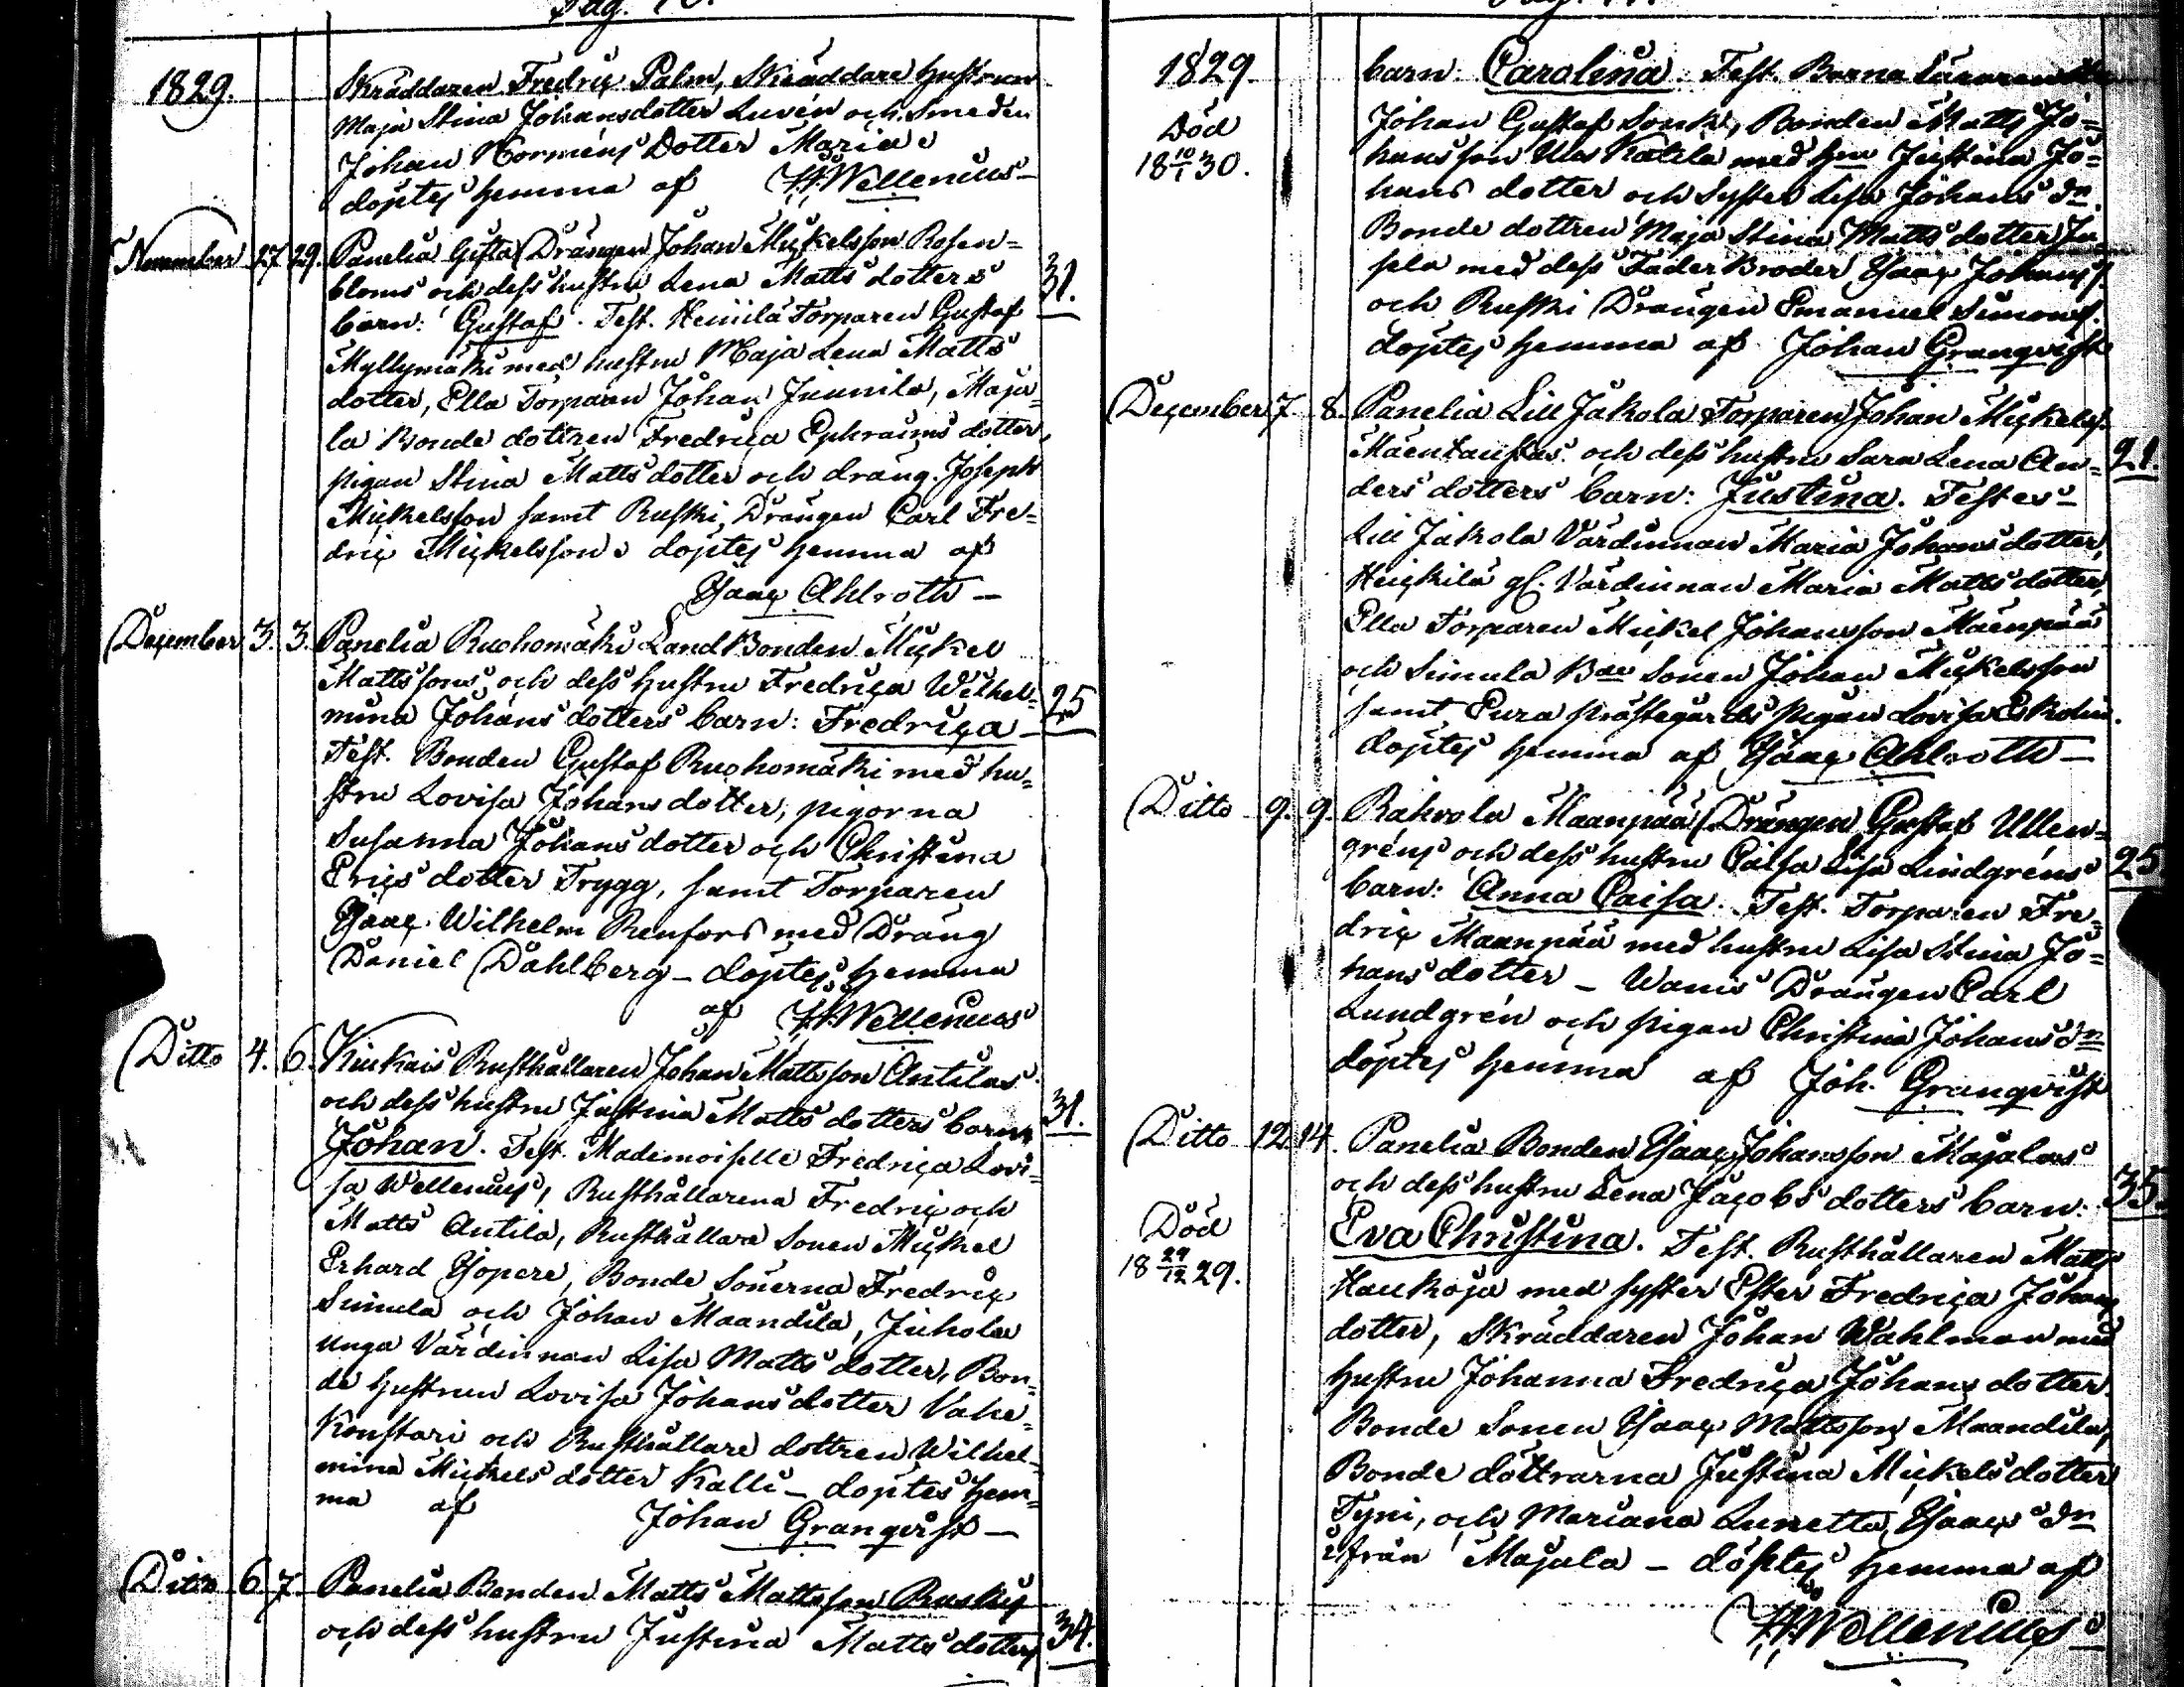 Pag.
1829.
Skräddaren Fredric Palm, Skräddare Hustrun
Maja Stina Johansdotter Luvén och Smeden
Johan Norméns Dotter Maria
döptes hemma af H. Wellenius
November 27 29. Panelia Gifta Drängen Johan Mickelsson Rosen=
bloms och dess hustru Lena Matts dotters 31.
barn: Gustaf. Test. Heiiilä Torparen Gustaf
Myllymäki med hustru Maja Lena Matts
dotter, Ella Torparen Johan Junnila, Maja=
la Bonde dottren Fredrica Ephraims dotter,
pigan Stina Matts dotter och dräng. Joseph
Mickelsson samt Ruski Drängen Carl Fre=
dric Mickelsson döptes hemma af
Isaac Ahlroth —
December 3. 3. Panelia Ruohomäki Land Bonden Mickel
Mattssons och dess Hustru Fredrica Wilhel= 25
mina Johans dotters barn: Fredrica —
Test. Bonden Gustaf Ruohomäki med hu=
stru Lovisa Johans dotter, pigorna
Susanna Johans dotter och Christina
Erics dotter Trygg, samt Torparen
Isaac Wilhelm Renfors med Dräng
Daniel Dahlberg — döptes hemma
af H. Wellenius
Ditto 4. 6. Kiukais Rusthållaren Johan Mattsson Antilas
och dess hustru Justina Matts dotters barn 31.
Johan. Test. Mademoiselle Fredrica Lovi=
sa Wellenius, Rusthållarena Fredric och
Matts Antila, Rusthållare Sonen Mickel
Erhard Isopere, Bonde Sönerna Fredric
Simula och Johan Maandila, Juhola
unga Värdinnan Lisa Matts dotter, Bon=
de Hustrun Lovisa Johans dotter Vahe=
Konstari och Rusthållare dottren Wilhel=
mina Mickels dotter Kalli — döptes hem=
ma af Johan Granqvist —
Ditto 6. 7. Panelia Bonden Matts Mattsson Ruskis
och dess hustru Justina Matts dotters 34.
Pag.
1829
barn: Carolina. Test. Barna Läraren
Johan Gustaf Sonk, Bonden Matts Jo=
Död
18 10/1 30.
hansson Katila med Hru Justina Jo=
hans dotter och Syster Lisa Johans dr.
Bonde dottren Maja Stina Matts dotter
sela med dess Fader Broder Isaac Johanss.
och Ruski Drängen Emanuel Simonss.
döptes hemma af Johan Granqvist
December 7 8. Panelia Lill Jakola Torparen Johan Mickelss.
Mäentaustas och dess hustru Sara Lena An= 21.
ders dotters barn: Justina. Testes —
Lill Jakola Värdinnan Maria Johans dotter,
Heickilä gl. Värdinnan Maria Matts dotter,
Ella Torparen Mickel Johansson Mäenpää
och Simula Bde Sonen Johan Mickelsson
samt Eura prästegårds pigan Lovisa Eskolin.
döptes hemma af Isaac Ahlroth —
Ditto 9. 9. Rahvola Maanpää Drängen Gustaf Ullen=
gréns och dess hustru Caisa Lisa Lindgréns 25
barn: Anna Caisa. Test. Torparen Fre=
dric Maanpää med hustru Lisa Stina Jo=
hans dotter — Wanis Drängen Carl
Lundgrén och pigan Christina Johans dr
döptes hemma af Joh. Granqvist
Ditto 12. 14. Panelia Bonden Isaac Johansson Majalas
och dess hustru Lena Jacobs dotters barn: 35.
Död
18 29/12 29.
Eva Christina. Test. Rusthållaren Matts
Haukoja med syster Ester Fredrica Johans
dotter, Skräddaren Johan Wahlman med
Hustru Johanna Fredrica Johans dotter.
Bonde Sonen Isaac Mattsson Maandila,
Bonde döttrarna Justina Mickels dotter
Tyni, och Mariana Lunetta Isaacs dr
ifrån Majala — döptes hemma af
H. Wellenius